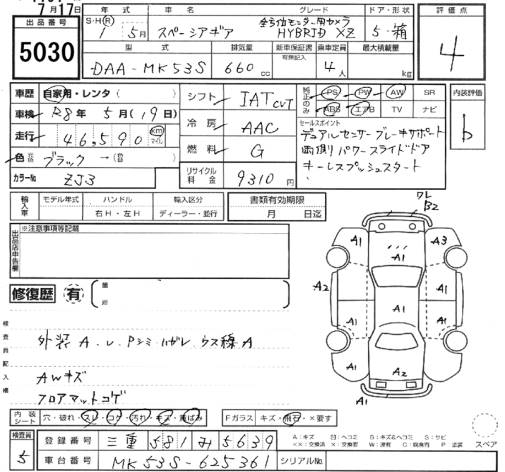 7月17日
出品番号 5030
年式 車名 グレード ドア・形状 評価点
S・H・Ⓡ 1年 5月 スペーシアギア 全方位モニター用カメラ HYBRID XZ 5・箱 4
型式 排気量 新車保証書 乗車定員 最大積載量
DAA-MK53S 660cc 有無記入 4人 kg
車歴 自家用・レンタ
車検 R8年 5月(19日)
走行 46,590 km マイル
色 元色 ブラック → (色)
カラーNo ZJ3
シフト IAT CVT
冷房 AAC
燃料 G
リサイクル料金 9310円
純正のみ PS PW AW SR
ABS エアB TV ナビ
セールスポイント
デュアルセンサーブレーキサポート
両側パワースライドドア
キーレスプッシュスタート
内装評価 b
輸入車 モデル年式 ハンドル 輸入区分 書類有効期限
右H・左H ディーラー・並行 月 日迄
出品店申告欄 ※注意事項等記載
修復歴 有 箇所
検査員記入欄
外装A.U.Pシミ.ハガレ.ウス線A
AWキズ
フロアマットコゲ
ワレ
B2
A1
A1 A3
A1
A2 A1 A1 A1
A1 A1
A2
内装シート 穴・破れ・スレ・コゲ・汚れ・キズ・亜ばみ Fガラス キズ・飛石・×要す
検査員 5
登録番号 三重 581 み 5639
車台番号 MK53S-625361 シリアルNo.
A:キズ U:ヘコミ B:キズ&ヘコミ S:サビ
××:交換済 ×:交換要 W:波有 C:腐食有 P:塗装 スペア